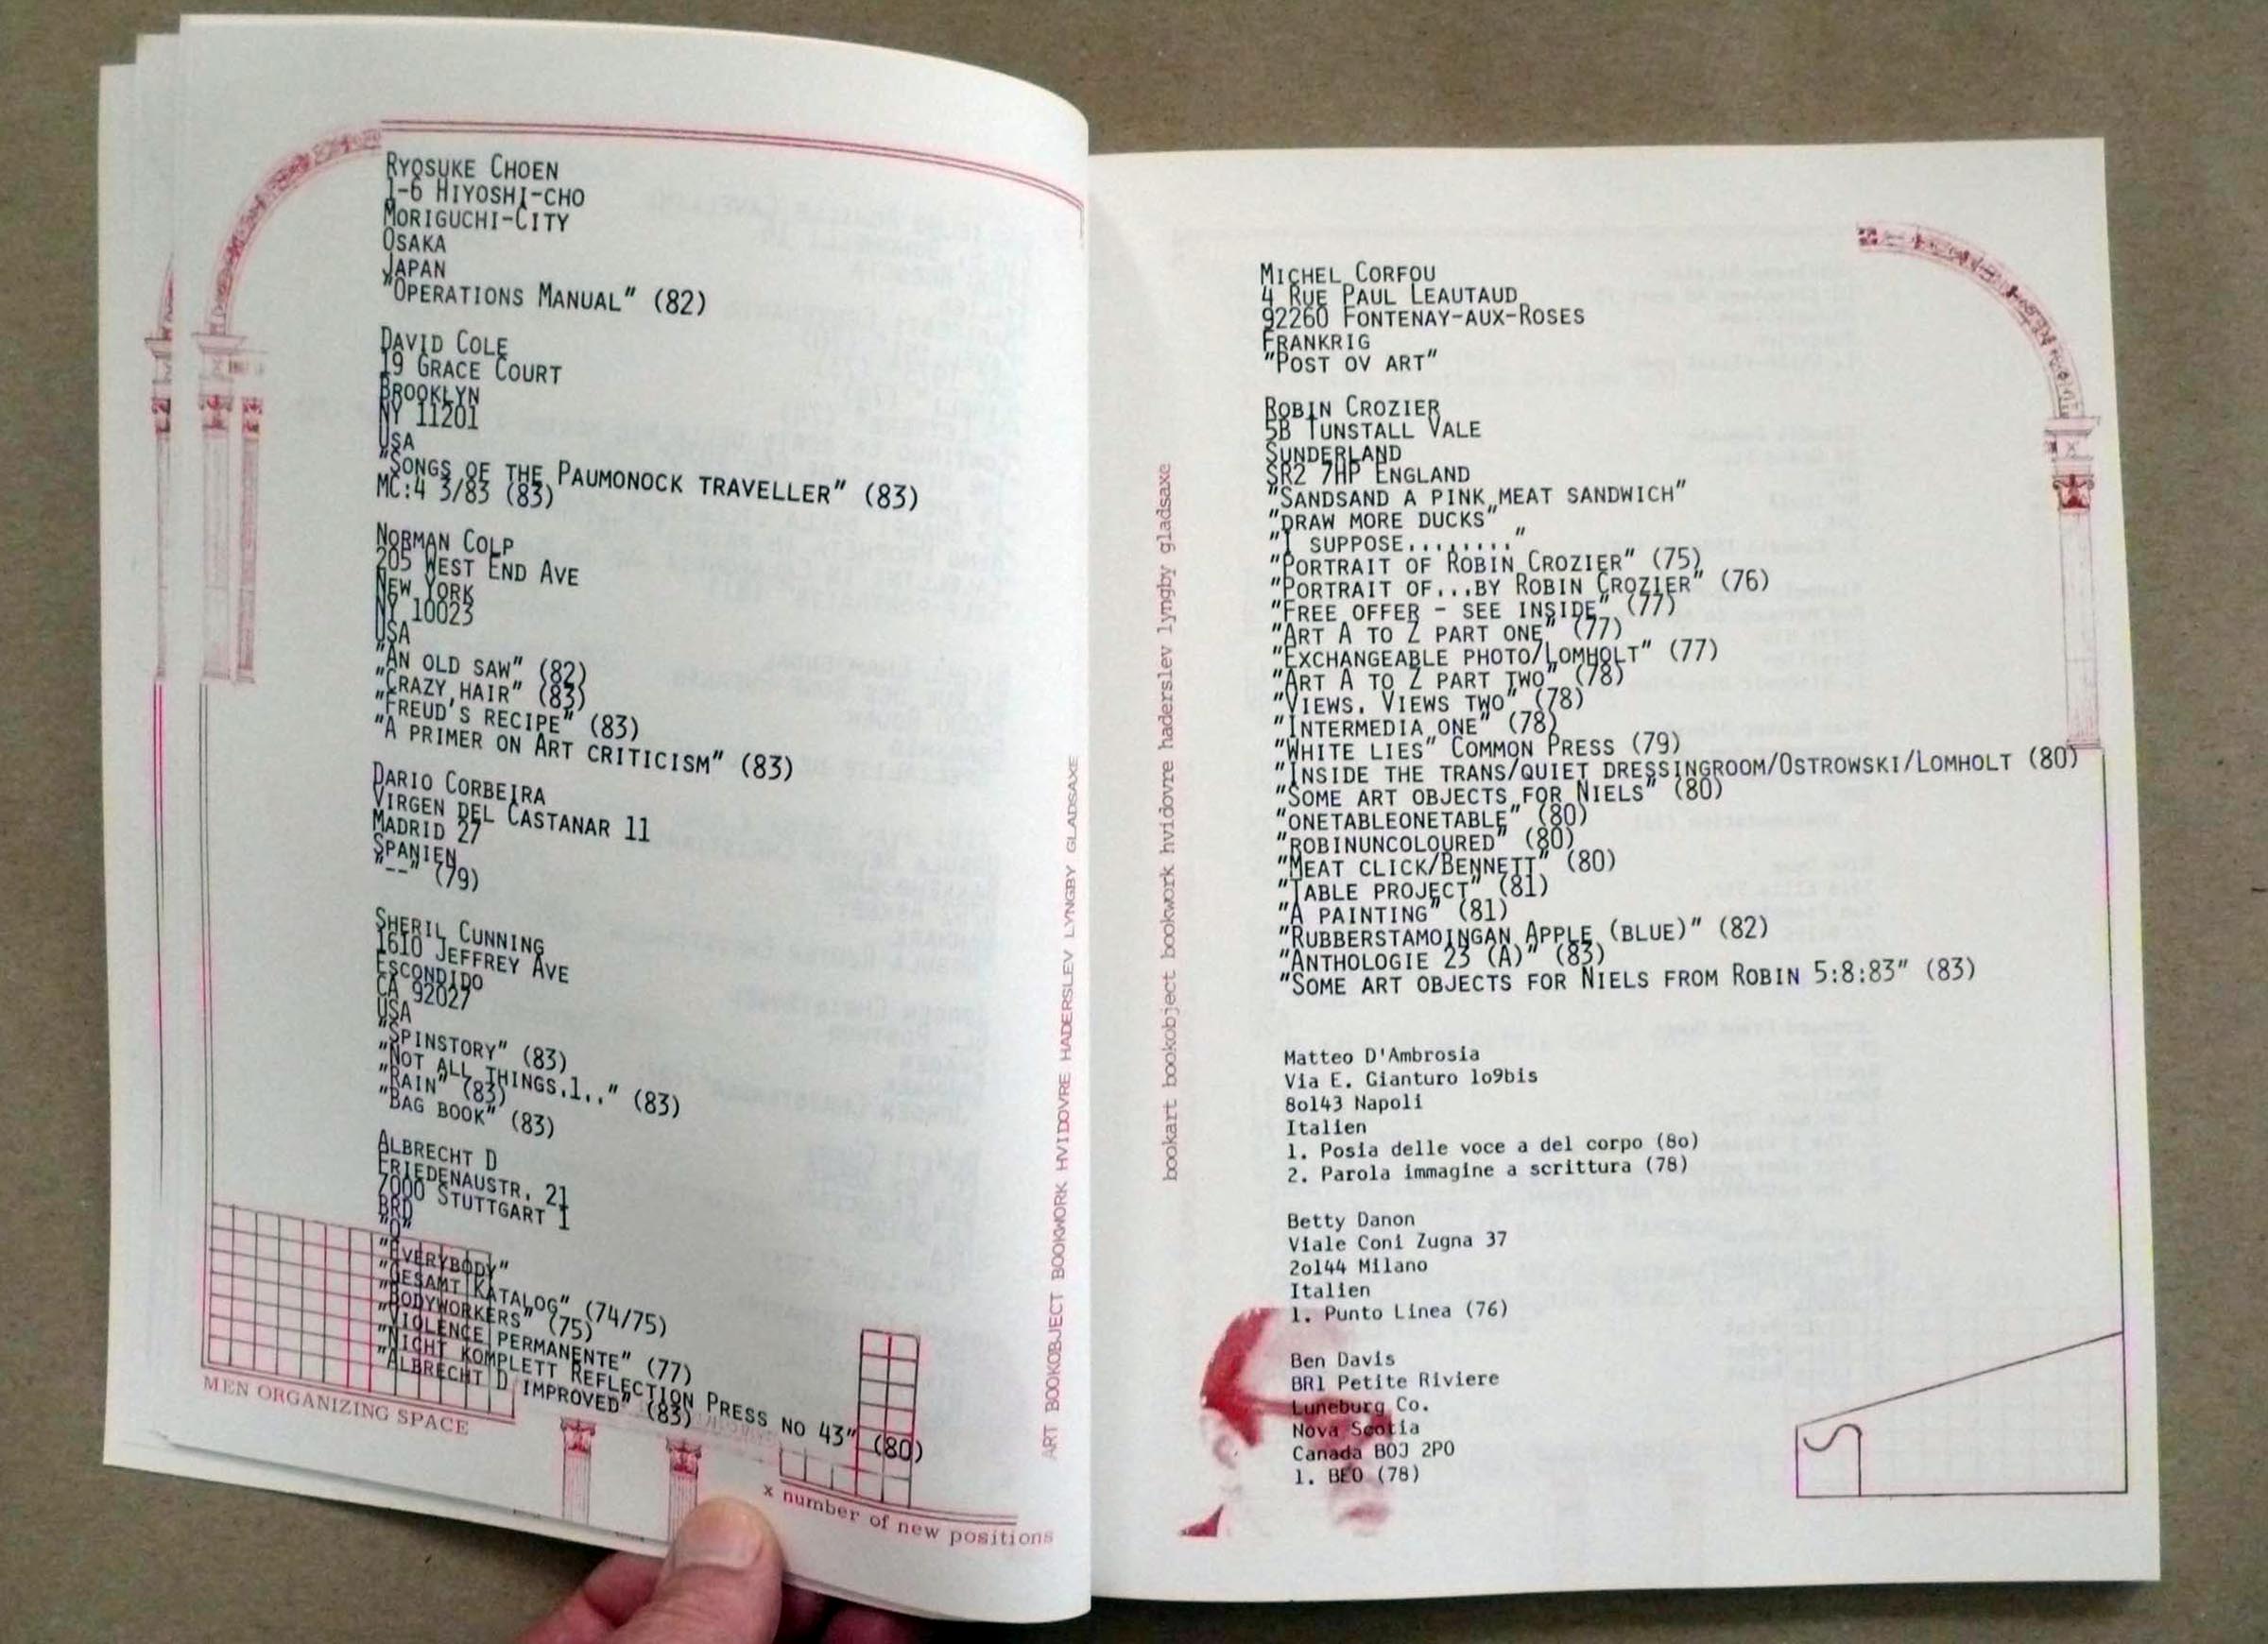 Ryosuke Choen
1-6 Hiyoshi-cho
Moriguchi-City
Osaka
Japan
"Operations Manual" (82)
David Cole
19 Grace Court
Brooklyn
NY 11201
Usa
"Songs of the Paumonock traveller" (83)
MC:4 3/83 (83)
Norman Colp
205 West End Ave
New York
NY 10023
USA
"An old saw" (82)
"Crazy hair" (83)
"Freud's recipe" (83)
"A primer on Art criticism" (83)
Dario Corbeira
Virgen del Castanar 11
Madrid 27
Spanien
"--" (79)
Sheril Cunning
1610 Jeffrey Ave
Escondido
CA 92027
USA
"Spinstory" (83)
"Not all things.1.." (83)
"Rain" (83)
"Bag book" (83)
Albrecht D
Friedenaustr. 21
7000 Stuttgart 1
BRD
"0"
"Everybody"
"Gesamt Katalog" (74/75)
"Bodyworkers" (75)
"Violence permanente" (77)
"Nicht komplett Reflection Press no 43" (80)
"Albrecht D improved" (83)
MEN ORGANIZING SPACE
x number of new positions
ART BOOKOBJECT BOOKWORK HVIDOVRE HADERSLEV LYNGBY GLADSAXE
bookart bookobject bookwork hvidovre haderslev lyngby gladsaxe
Michel Corfou
4 Rue Paul Leautaud
92260 Fontenay-aux-Roses
Frankrig
"Post ov art"
Robin Crozier
5B Tunstall Vale
Sunderland
SR2 7HP England
"Sandsand a pink meat sandwich"
"draw more ducks"
"I suppose........"
"Portrait of Robin Crozier" (75)
"Portrait of...by Robin Crozier" (76)
"Free offer - see inside" (77)
"Art A to Z part one" (77)
"Exchangeable photo/Lomholt" (77)
"Art A to Z part two" (78)
"Views. Views two" (78)
"Intermedia one" (78)
"White lies" Common Press (79)
"Inside the trans/quiet dressingroom/Ostrowski/Lomholt (80)
"Some art objects for Niels" (80)
"onetableonetable" (80)
"robinuncoloured" (80)
"Meat click/Bennett" (80)
"Table project" (81)
"A painting" (81)
"Rubberstamoingan Apple (blue)" (82)
"Anthologie 23 (A)" (83)
"Some art objects for Niels from Robin 5:8:83" (83)
Matteo D'Ambrosia
Via E. Gianturo lo9bis
8o143 Napoli
Italien
1. Posia delle voce a del corpo (8o)
2. Parola immagine a scrittura (78)
Betty Danon
Viale Coni Zugna 37
2o144 Milano
Italien
1. Punto Linea (76)
Ben Davis
BR1 Petite Riviere
Luneburg Co.
Nova Scotia
Canada BOJ 2PO
1. BEO (78)